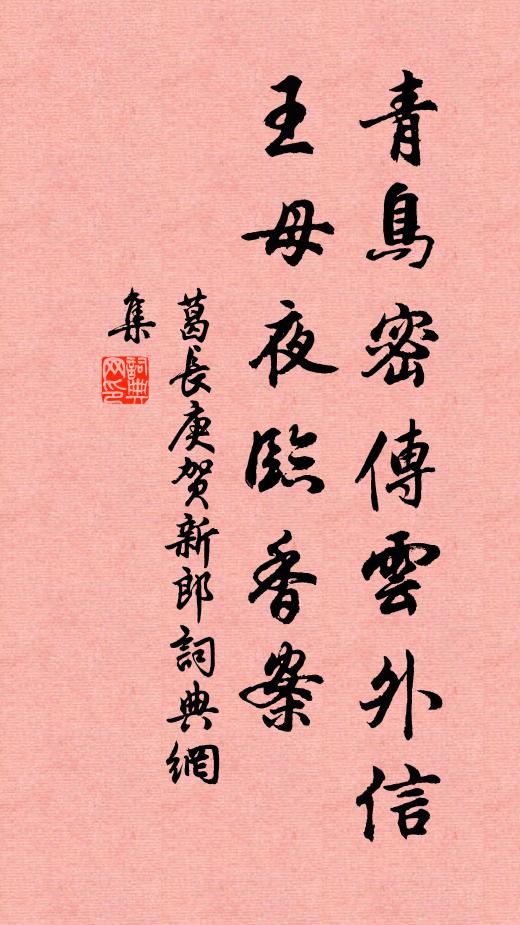 青鳥密傳雲外信
王母夜臨香案
葛長庚賀新郎詞典網
集
詞典网印